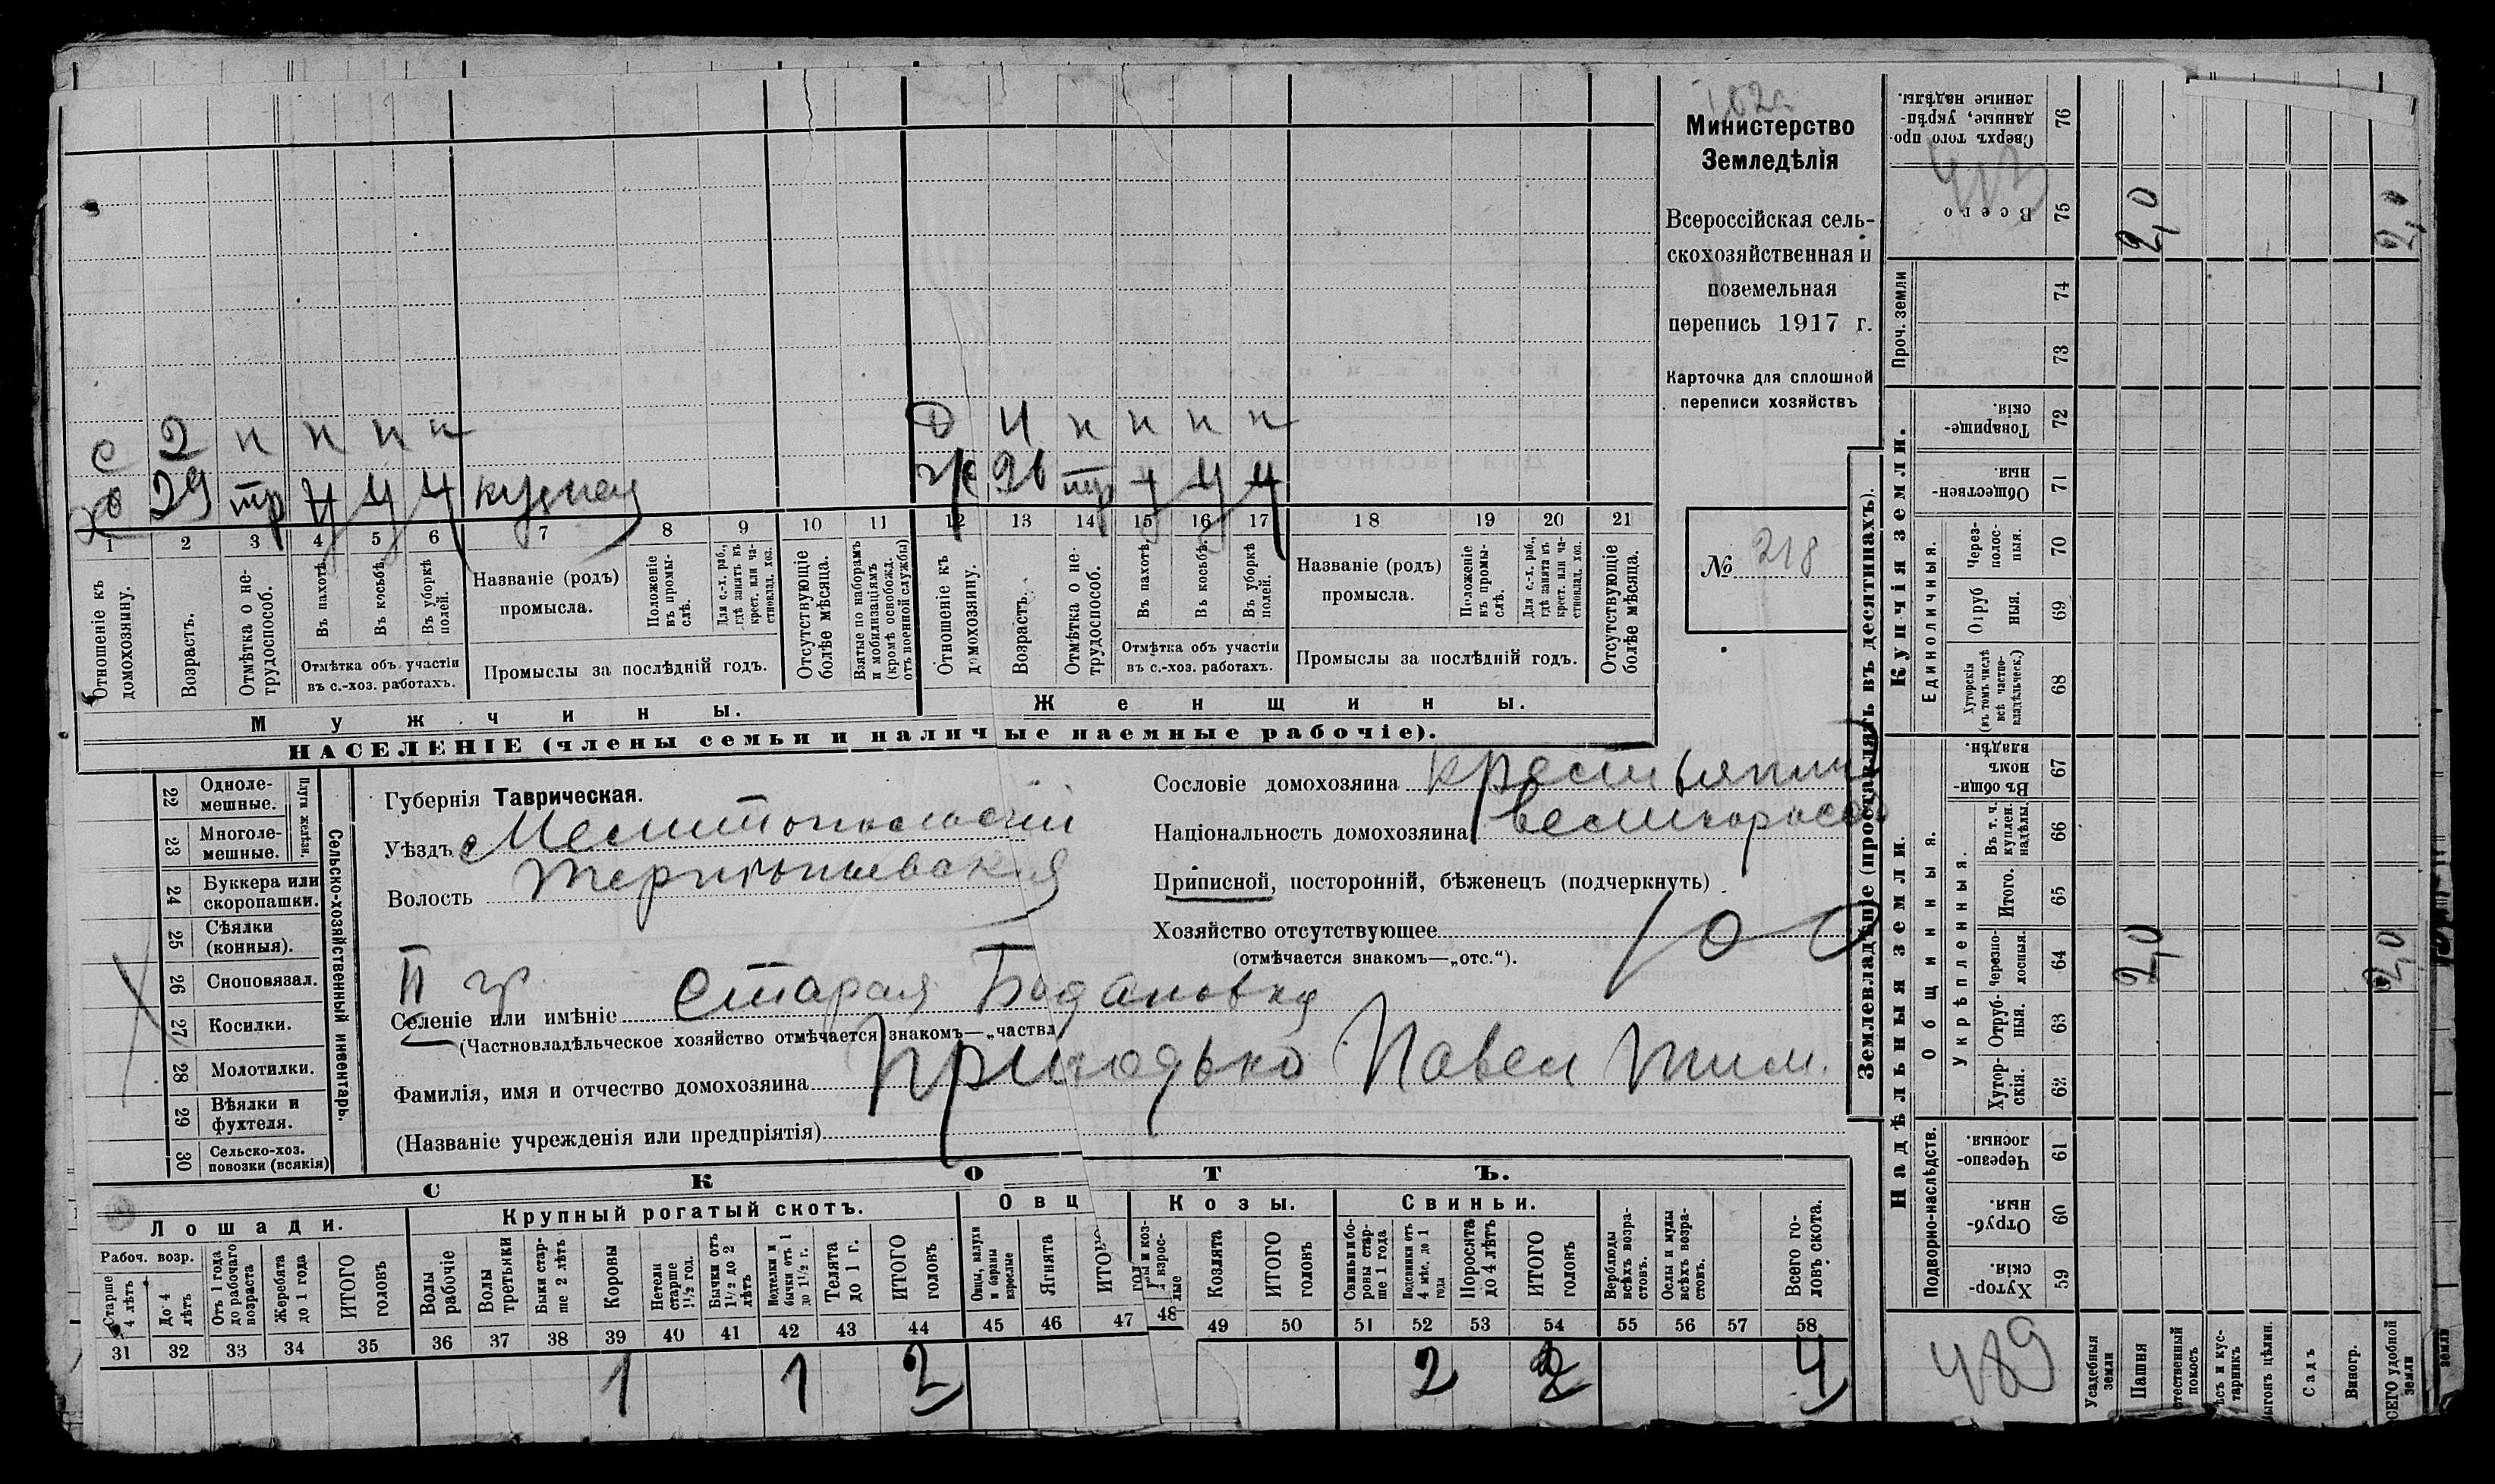 с 2 н н н н
Д 4 н н н н
х 29 тр ч ч ч кузнец
ж 26 тр ч ч ч
1 2 3 4 5 6 7 8 9 10 11 12 13 14 15 16 17 18 19 20 21
Отношеніе къ домохозяину.
Возрастъ.
Отмѣтка о не-трудоспособ.
Въ пахотѣ.
Въ косьбѣ.
Въ уборкѣ полей.
Отмѣтка объ участіи
въ с.-хоз. работахъ.
Названіе (родъ)
промысла.
Положеніе въ промы-слѣ.
Для с.-х. раб., гдѣ занятъ въ крест. или ча-стновлад. хоз.
Промыслы за послѣдній годъ.
Отсутствующіе болѣе мѣсяца.
Взятые по наборамъ и мобилизаціямъ (кромѣ освобожд. отъ военной службы)
Отношеніе къ домохозяину.
Возрастъ.
Отмѣтка о не-трудоспособ.
Въ пахотѣ
Въ косьбѣ.
Въ уборкѣ полей.
Отмѣтка объ участіи
въ с.-хоз. работахъ.
Названіе (родъ)
промысла.
Положеніе въ промы-слѣ.
Для с.-х. раб., гдѣ занята въ крест. или ча-стновлад. хоз.
Промыслы за послѣдній годъ.
Отсутствующіе болѣе мѣсяца.
Мужчины.
Женщины.
НАСЕЛЕНІЕ (члены семьи и наличные наемные рабочіе).
Министерство
Земледѣлія
Всероссійская сель-
скохозяйственная и
поземельная
перепись 1917 г.
Карточка для сплошной
переписи хозяйствъ
№ 218
22 Одноле-мешные.
23 Многоле-мешные.
Плуги желѣзн.
24 Буккера или скоропашки.
25 Сѣялки (конныя).
26 Сноповязал.
27 Косилки.
28 Молотилки.
29 Вѣялки и фухтеля.
30 Сельско-хоз. повозки (всякія)
Сельско-хозяйственный инвентарь.
Губернія Таврическая.
Уѣздъ Мелитопольскій
Волость
II гр.
Селеніе или имѣніе Старая Богдановка
(Частновладѣльческое хозяйство отмѣчается знакомъ—„частвл
Фамилія, имя и отчество домохозяина Приходько Павел Тим.
(Названіе учрежденія или предпріятія)
Сословіе домохозяина крестьянин
Національность домохозяина великоросс
Приписной, посторонній, бѣженецъ (подчеркнуть)
Хозяйство отсутствующее
(отмѣчается знакомъ—„отс.“).
СКОТЪ.
Лошади.
Крупный рогатый скотъ.
Овц
Козы.
Свиньи.
Рабоч. возр.
Старше 4 лѣтъ
До 4 лѣтъ
Отъ 1 года до рабочаго возраста
Жеребята до 1 года
ИТОГО головъ
Волы рабочіе
Волы третьяки
Быки стар-ше 2 лѣтъ
Коровы
Нетели старше 1½ год.
Бычки отъ 1½ до 2 лѣтъ
Нетелки и бычки отъ 1 до 1½ г.
Телята до 1 г.
ИТОГО головъ
Овцы, валухи и бараны взрослые
Ягнята
Козлята
ИТОГО головъ
Свиньи и бо-ровы стар-ше 1 года
Подсвинки отъ 4 мѣс. до 1 года
Поросята до 4 лѣтъ
ИТОГО головъ
Верблюды всѣхъ возра-стовъ.
Ослы и мулы всѣхъ возра-стовъ.
Всего го-ловъ скота.
31 32 33 34 35 36 37 38 39 40 41 42 43 44 45 46 47 48 49 50 51 52 53 54 55 56 57 58
1 1 2 2 2 4
Землевладѣніе (проставлять въ десятинахъ).
Купчія земли.
Надѣльныя земли.
Сверхъ того про-данные, укрѣп-ленные надѣлы. 76
Всего 75 2,0 2,0
Проч. земли 74 73
Товарище-скія. 72
Обществен-ныя 71
Единоличныя.
Через-полос-ныя. 70
Отруб ныя. 69
Хуторскія (въ томъ числѣ всѣ частно-владѣльческ.) 68
Общинныя.
Въ общи-номъ владѣн. 67
Укрѣпленныя.
Въ т. ч. куплен. надѣлы. 66
Итого. 65
Черезпо-лосныя. 64 2,0 2,0
Отруб-ныя. 63
Хутор-скія. 62
Подворно-наслѣдств.
Черезпо-лосныя. 61
Отруб-ныя. 60
Хутор-скія. 59
489
Усадебныя земли
Пашня
тественный покосъ
ѣсъ и кус-тарникъ
ыгонъ цѣлин.
Садъ
Виногр.
СЕГО удобной земли
земли